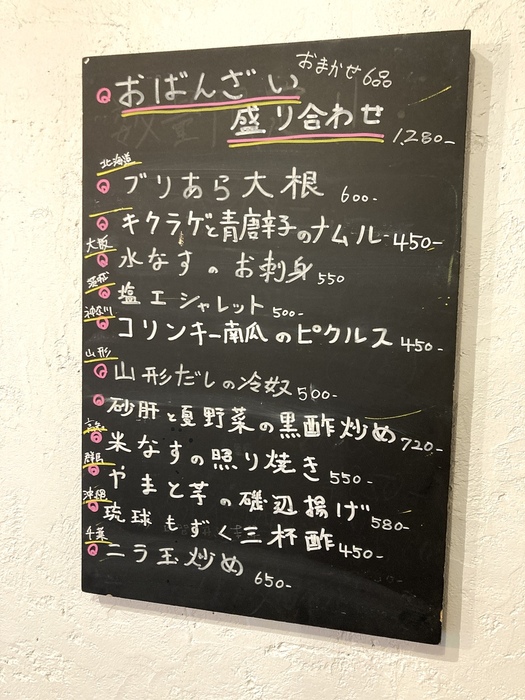 おばんざい おまかせ6品
盛り合わせ 1,280-
北海道
ブリあら大根 600-
キクラゲと青唐辛子のナムル 450-
大阪
水なすのお刺身 550
塩エシャレット 500-
神奈川
コリンキー南瓜のピクルス 450-
山形
山形だしの冷奴 500-
砂肝と夏野菜の黒酢炒め 720-
高知
米なすの照り焼き 550-
群馬
やまと芋の磯辺揚げ 580-
沖縄
琉球もずく三杯酢 450-
千葉
ニラ玉炒め 650-